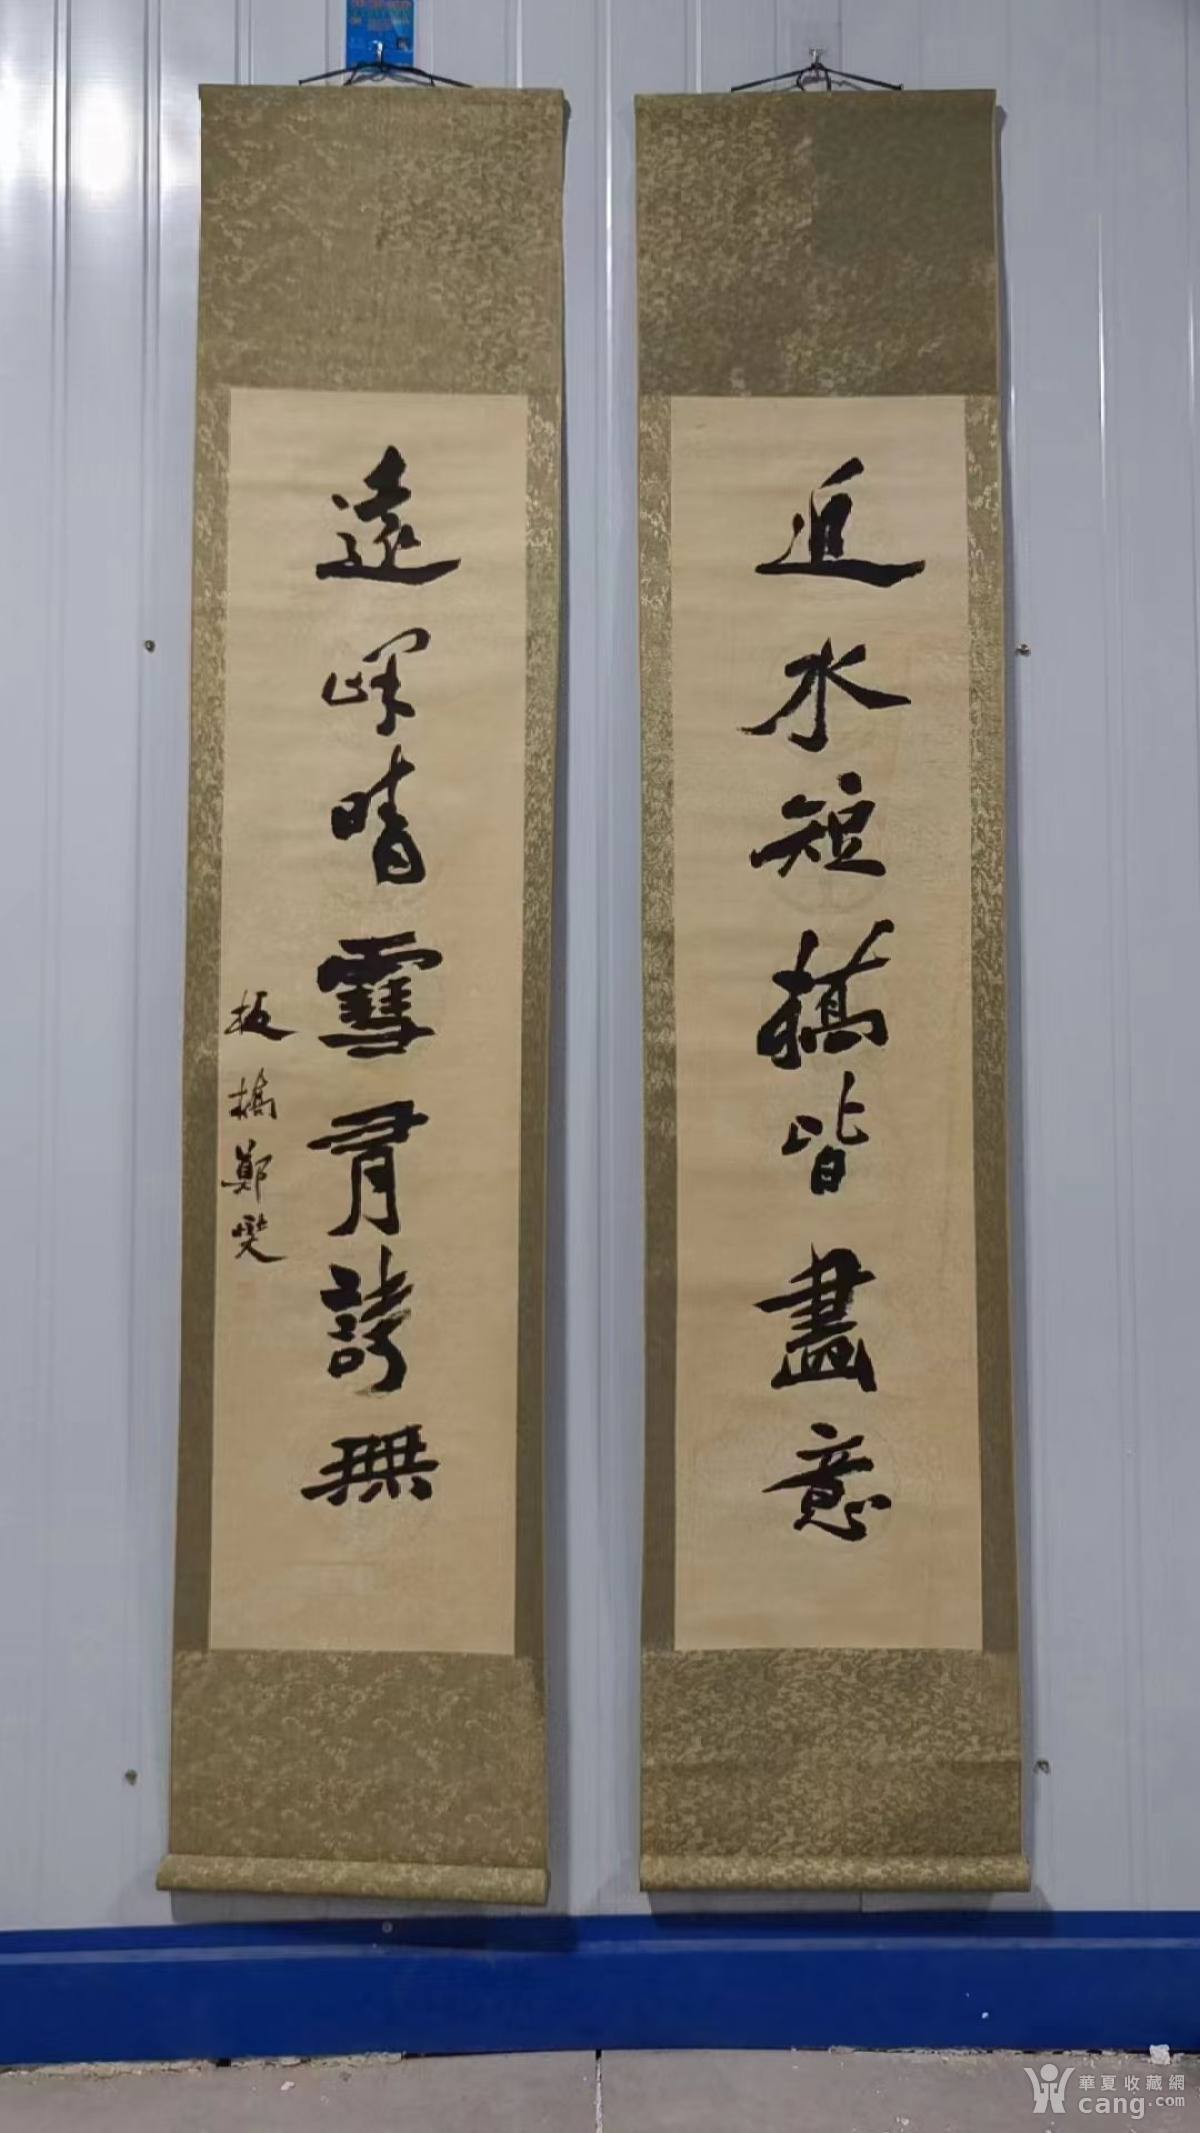 近水短橋皆畫意
遠峰晴雪有詩無
板橋鄭燮
華夏收藏網
cang.com